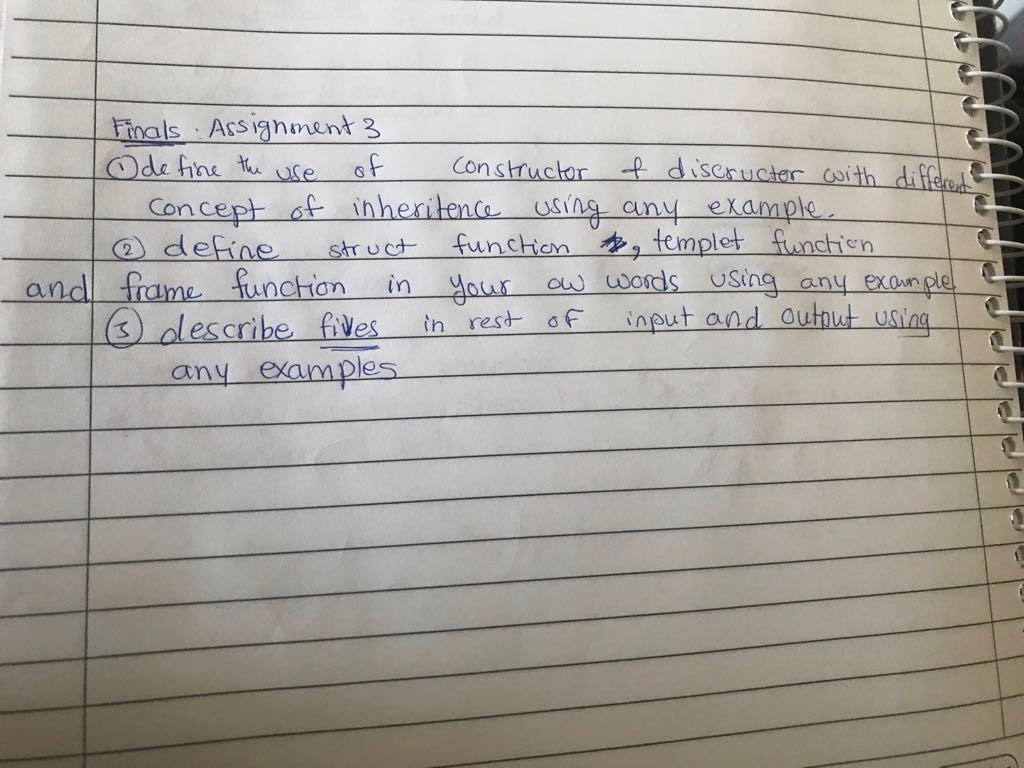 Finals : Assignment 3
① define the use of constructor & discructor with different
concept of inheritence using any example.
② define struct function , templet function
and frame function in your ow words using any example
③ describe files in rest of input and output using
any examples